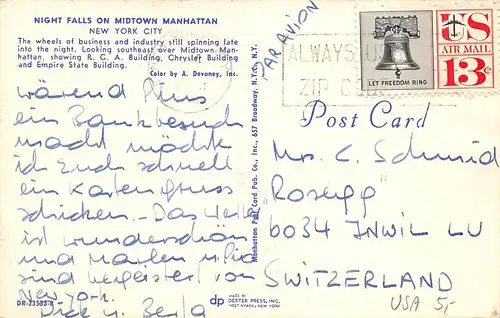 NIGHT FALLS ON MIDTOWN MANHATTAN
NEW YORK CITY
The wheels of business and industry still spinning late
into the night. Looking southeast over Midtown Man-
hattan, showing R. C. A. Building, Chrysler Building
and Empire State Building.
Color by A. Devaney, Inc.
wärend Pius
ein Bankbesuch
macht möchte
ich Euch schnell
ein Kartengruss
schicken. Das Wetter
ist wunderschön
und Marlen u.
sind begeistert von
New York.
u. Berta
DR-23583-B
Manhattan Post Card Pub. Co., Inc., 657 Broadway, N.Y.C., N.Y.
dp
MADE BY
DEXTER PRESS, INC.
WEST NYACK, NEW YORK
PAR AVION
ALWAYS US
ZIP CO
LET FREEDOM RING
US
AIR MAIL
13¢
Post Card
Mrs. C. Schmid
"Rosegg"
6034 INWIL LU
SWITZERLAND
USA 5,-